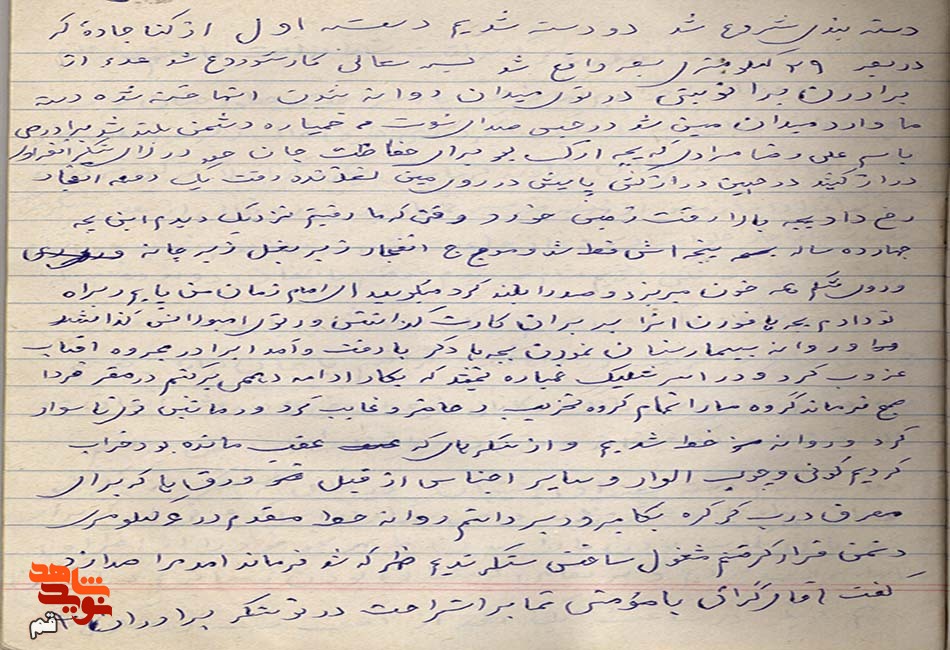 دسته بندی شروع شد دو دسته شدیم دسته اول از کنا جاده که
در بعد ۲۹ کیلومتری بعد واقع شو کار شروع شد عده از
برادرن برا نوبتی در توی میدان روانه شدن انتها خسته شده دسته
ما وارد میدان مین شو در حین صدای سوت خمپاره دشمن بلند شو برادرمی
باسم علی رضا مرادی که بچه ازک بود برای حفاظت جان خود در
دراز کشید در حین دراز کشی پایش در روی مین رفت یک دفعه انفجار
رخ داد بچه بالا رفت زمین خورد وقتی که ما رفتیم نزدیک دیدم این بچه
چهارده ساله پنجه اش قطع شد و موج انفجار زیر بغل زیر چانه
و روی شکم همه خون میریزد و صدرا بلند کرد میگوید ای امام زمان من پایم ر براه
تو دادم بچه ها فورن انرا بر بران کارت گذاشتن و ر توی امبولانس گذاشتند
و روانه بیمارستان نمودن بچه ها دگر با رفت و آمد ابرا در مجروه افتاب
غروب کرد و در اسر شلیک خمپاره نمیشد که بکار ادامه دهیم برگشتم در مقر فردا
صبح فرماند گروه مارا تمام گروه تخریب حاضر و غایب کرد و در ماشین سوار
کرد و روانه خط شدیم و از سنگر های که عقب مانده بود خراب
کردیم گونی و چوب الوار و سایر اجناس از قبیل ورق ها که برای
مصرف درب کرکره بکا میرود برداشتم روانه خط مقدم در ۶ کیلومتری
دشمن قرار گرفتم مشغول ساختن سنگر شدیم ظهر که شو فرماند امد مرا صدا زد
گفت اقای گرائی با مؤمنی شما برا استراحت در تو سنگر برادران
نوید شاهد
قم